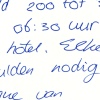 d 200 tot
06:30 uur
hotel. Elke
ulden nodig
van